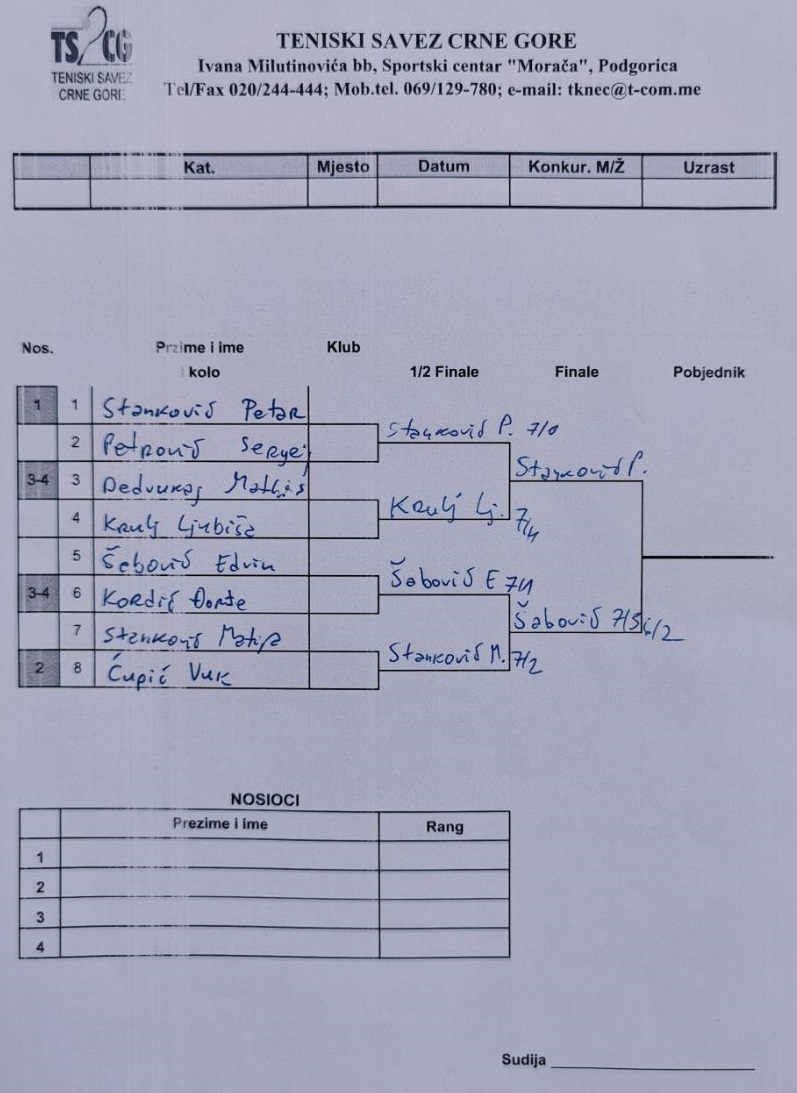 TS CG
TENISKI SAVEZ
CRNE GORE
TENISKI SAVEZ CRNE GORE
Ivana Milutinovića bb, Sportski centar "Morača", Podgorica
Tel/Fax 020/244-444; Mob.tel. 069/129-780; e-mail: tknec@t-com.me
Kat. Mjesto Datum Konkur. M/Ž Uzrast
Nos. Przime i ime Klub
I kolo 1/2 Finale Finale Pobjednik
1 1 Stanković Petar
Stanković P. 7/0
2 Petrović Sergej
Stanković P.
3-4 3 Dedvukaj Mathis
Krulj Lj. 7/4
4 Krulj Ljubiša
5 Šabović Edvin
Šabović E 7/1
3-4 6 Kordić Đorđe
Šabović 7/5 6/2
7 Stanković Matija
Stanković M. 7/2
2 8 Ćupić Vuk
NOSIOCI
Prezime i ime Rang
1
2
3
4
Sudija